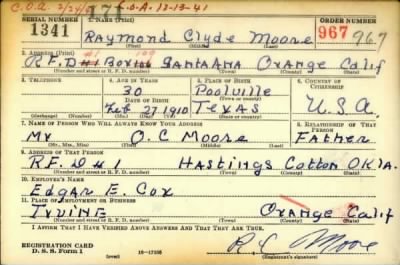 C.O.A. 2/24/ 171 C.O.A. 12-13-41
SERIAL NUMBER 1. NAME (Print) ORDER NUMBER
1341 Raymond Clyde Moore 967 967
(First) (Middle) (Last)
2. ADDRESS (Print) #1 109
R.F.D #1 Box 166 Santa Ana Orange Calif
(Number and street or R. F. D. number) (Town) (County) (State)
3. TELEPHONE 4. AGE IN YEARS 5. PLACE OF BIRTH 6. COUNTRY OF CITIZENSHIP
30 Poolville
DATE OF BIRTH (Town or county)
Feb 27 1910 Texas U.S.A
(Exchange) (Number) (Mo.) (Day) (Yr.) (State or country)
7. NAME OF PERSON WHO WILL ALWAYS KNOW YOUR ADDRESS 8. RELATIONSHIP OF THAT PERSON
Mr O.C Moore Father
(Mr., Mrs., Miss) (First) (Middle) (Last)
9. ADDRESS OF THAT PERSON
R.F.D #1 Hastings Cotton OKla.
(Number and street or R. F. D. number) (Town) (County) (State)
10. EMPLOYER'S NAME
Edgar E. Cox
11. PLACE OF EMPLOYMENT OR BUSINESS
Irvine Orange Calif
(Number and street or R. F. D. number) (Town) (County) (State)
I AFFIRM THAT I HAVE VERIFIED ABOVE ANSWERS AND THAT THEY ARE TRUE.
REGISTRATION CARD
D. S. S. Form 1 (over) 16-17105 R.C Moore
(Registrant's signature)